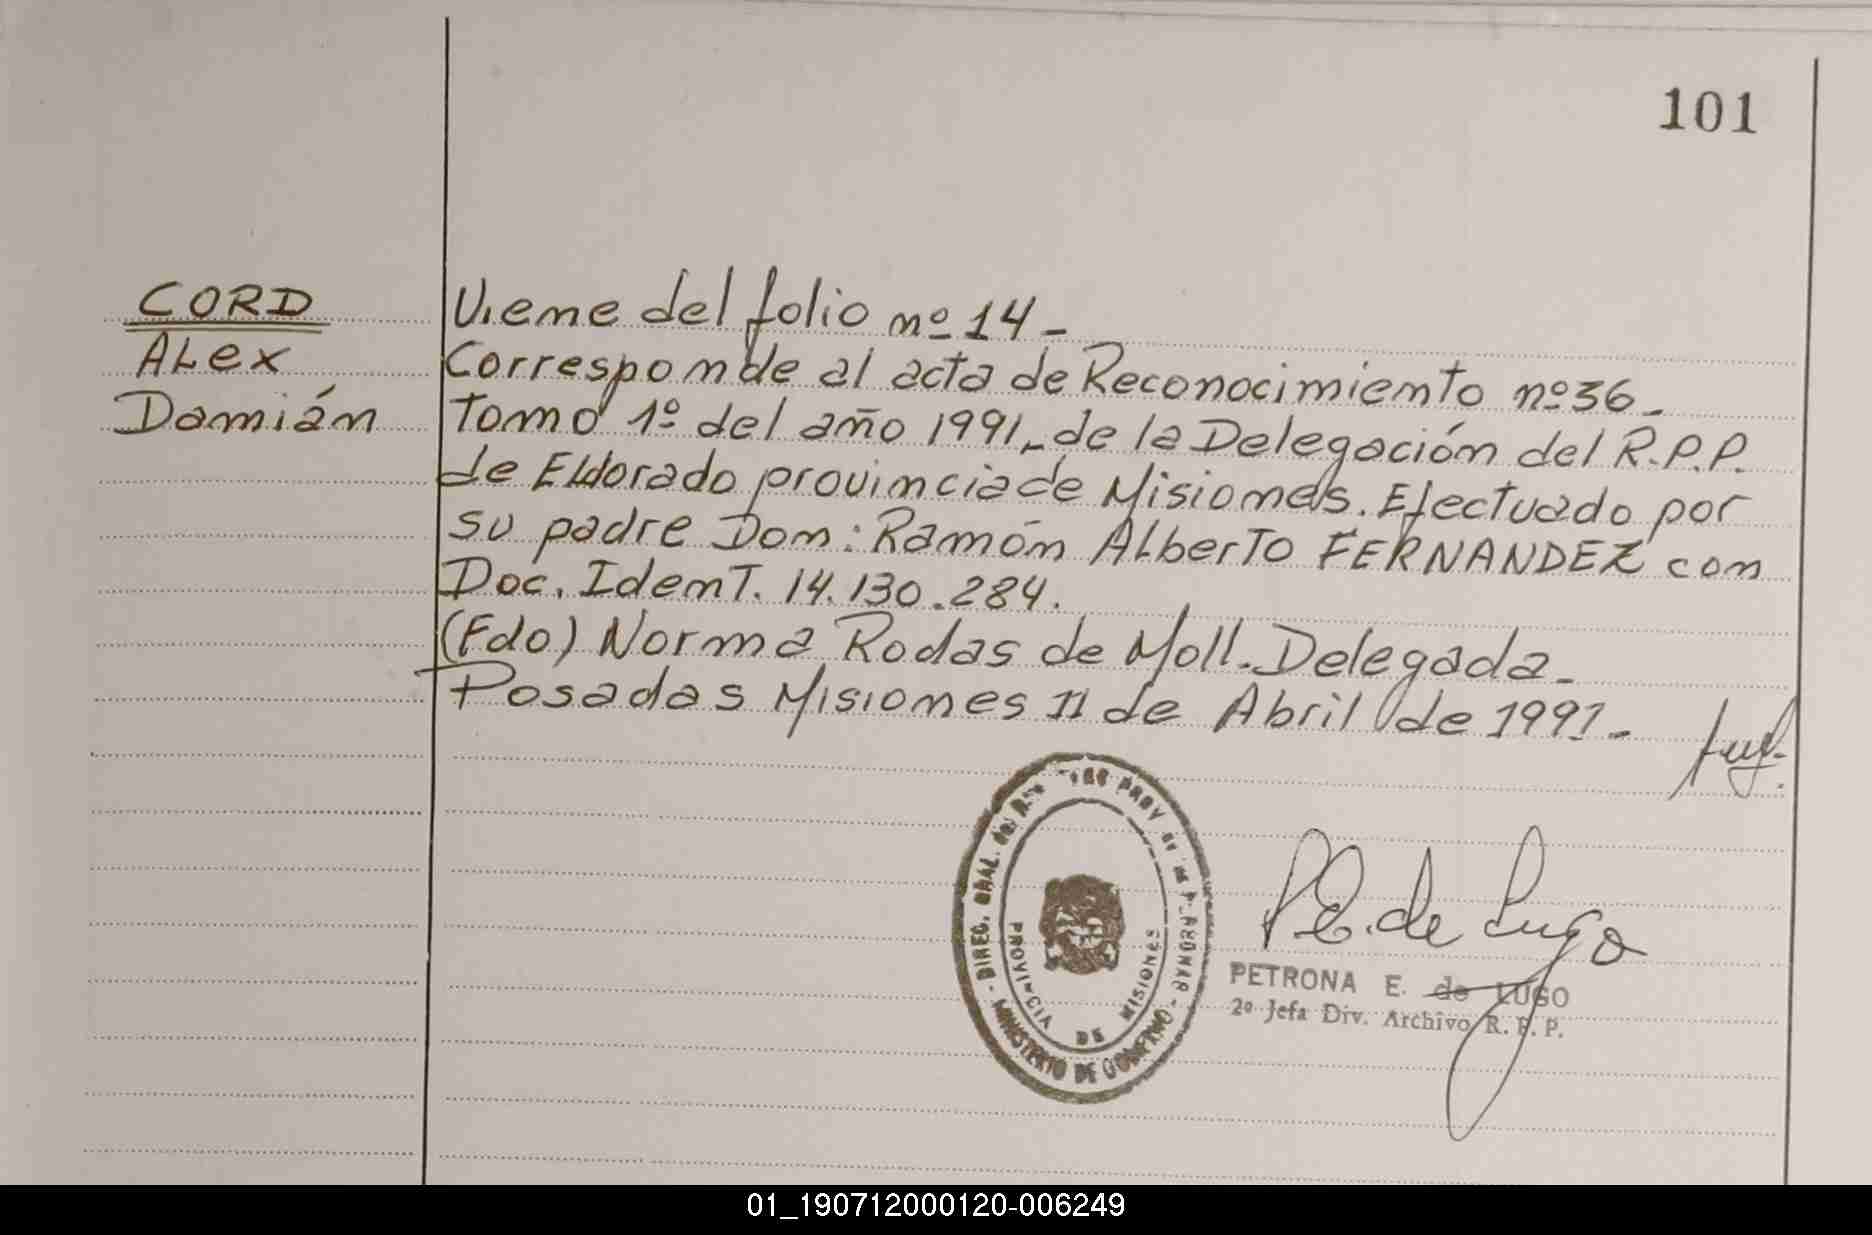 101
CORD
Alex
Damián
Viene del folio nº 14-
Corresponde al acta de Reconocimiento nº 36-
Tomo 1º del año 1991- de la Delegación del R.P.P.
de Eldorado provincia de Misiones. Efectuado por
su padre Don: Ramón Alberto FERNANDEZ con
Doc. Ident. 14.130.284.
(Fdo) Norma Rodas de Moll. Delegada-
Posadas Misiones 11 de Abril de 1991-
P E. de Lugo
PETRONA E. de LUGO
2º Jefa Div. Archivo R. P. P.
DIREC. GRAL. del PROV DE LAS PERSONAS - MINISTERIO DE GOBIERNO -
PROVINCIA DE MISIONES
01_190712000120-006249